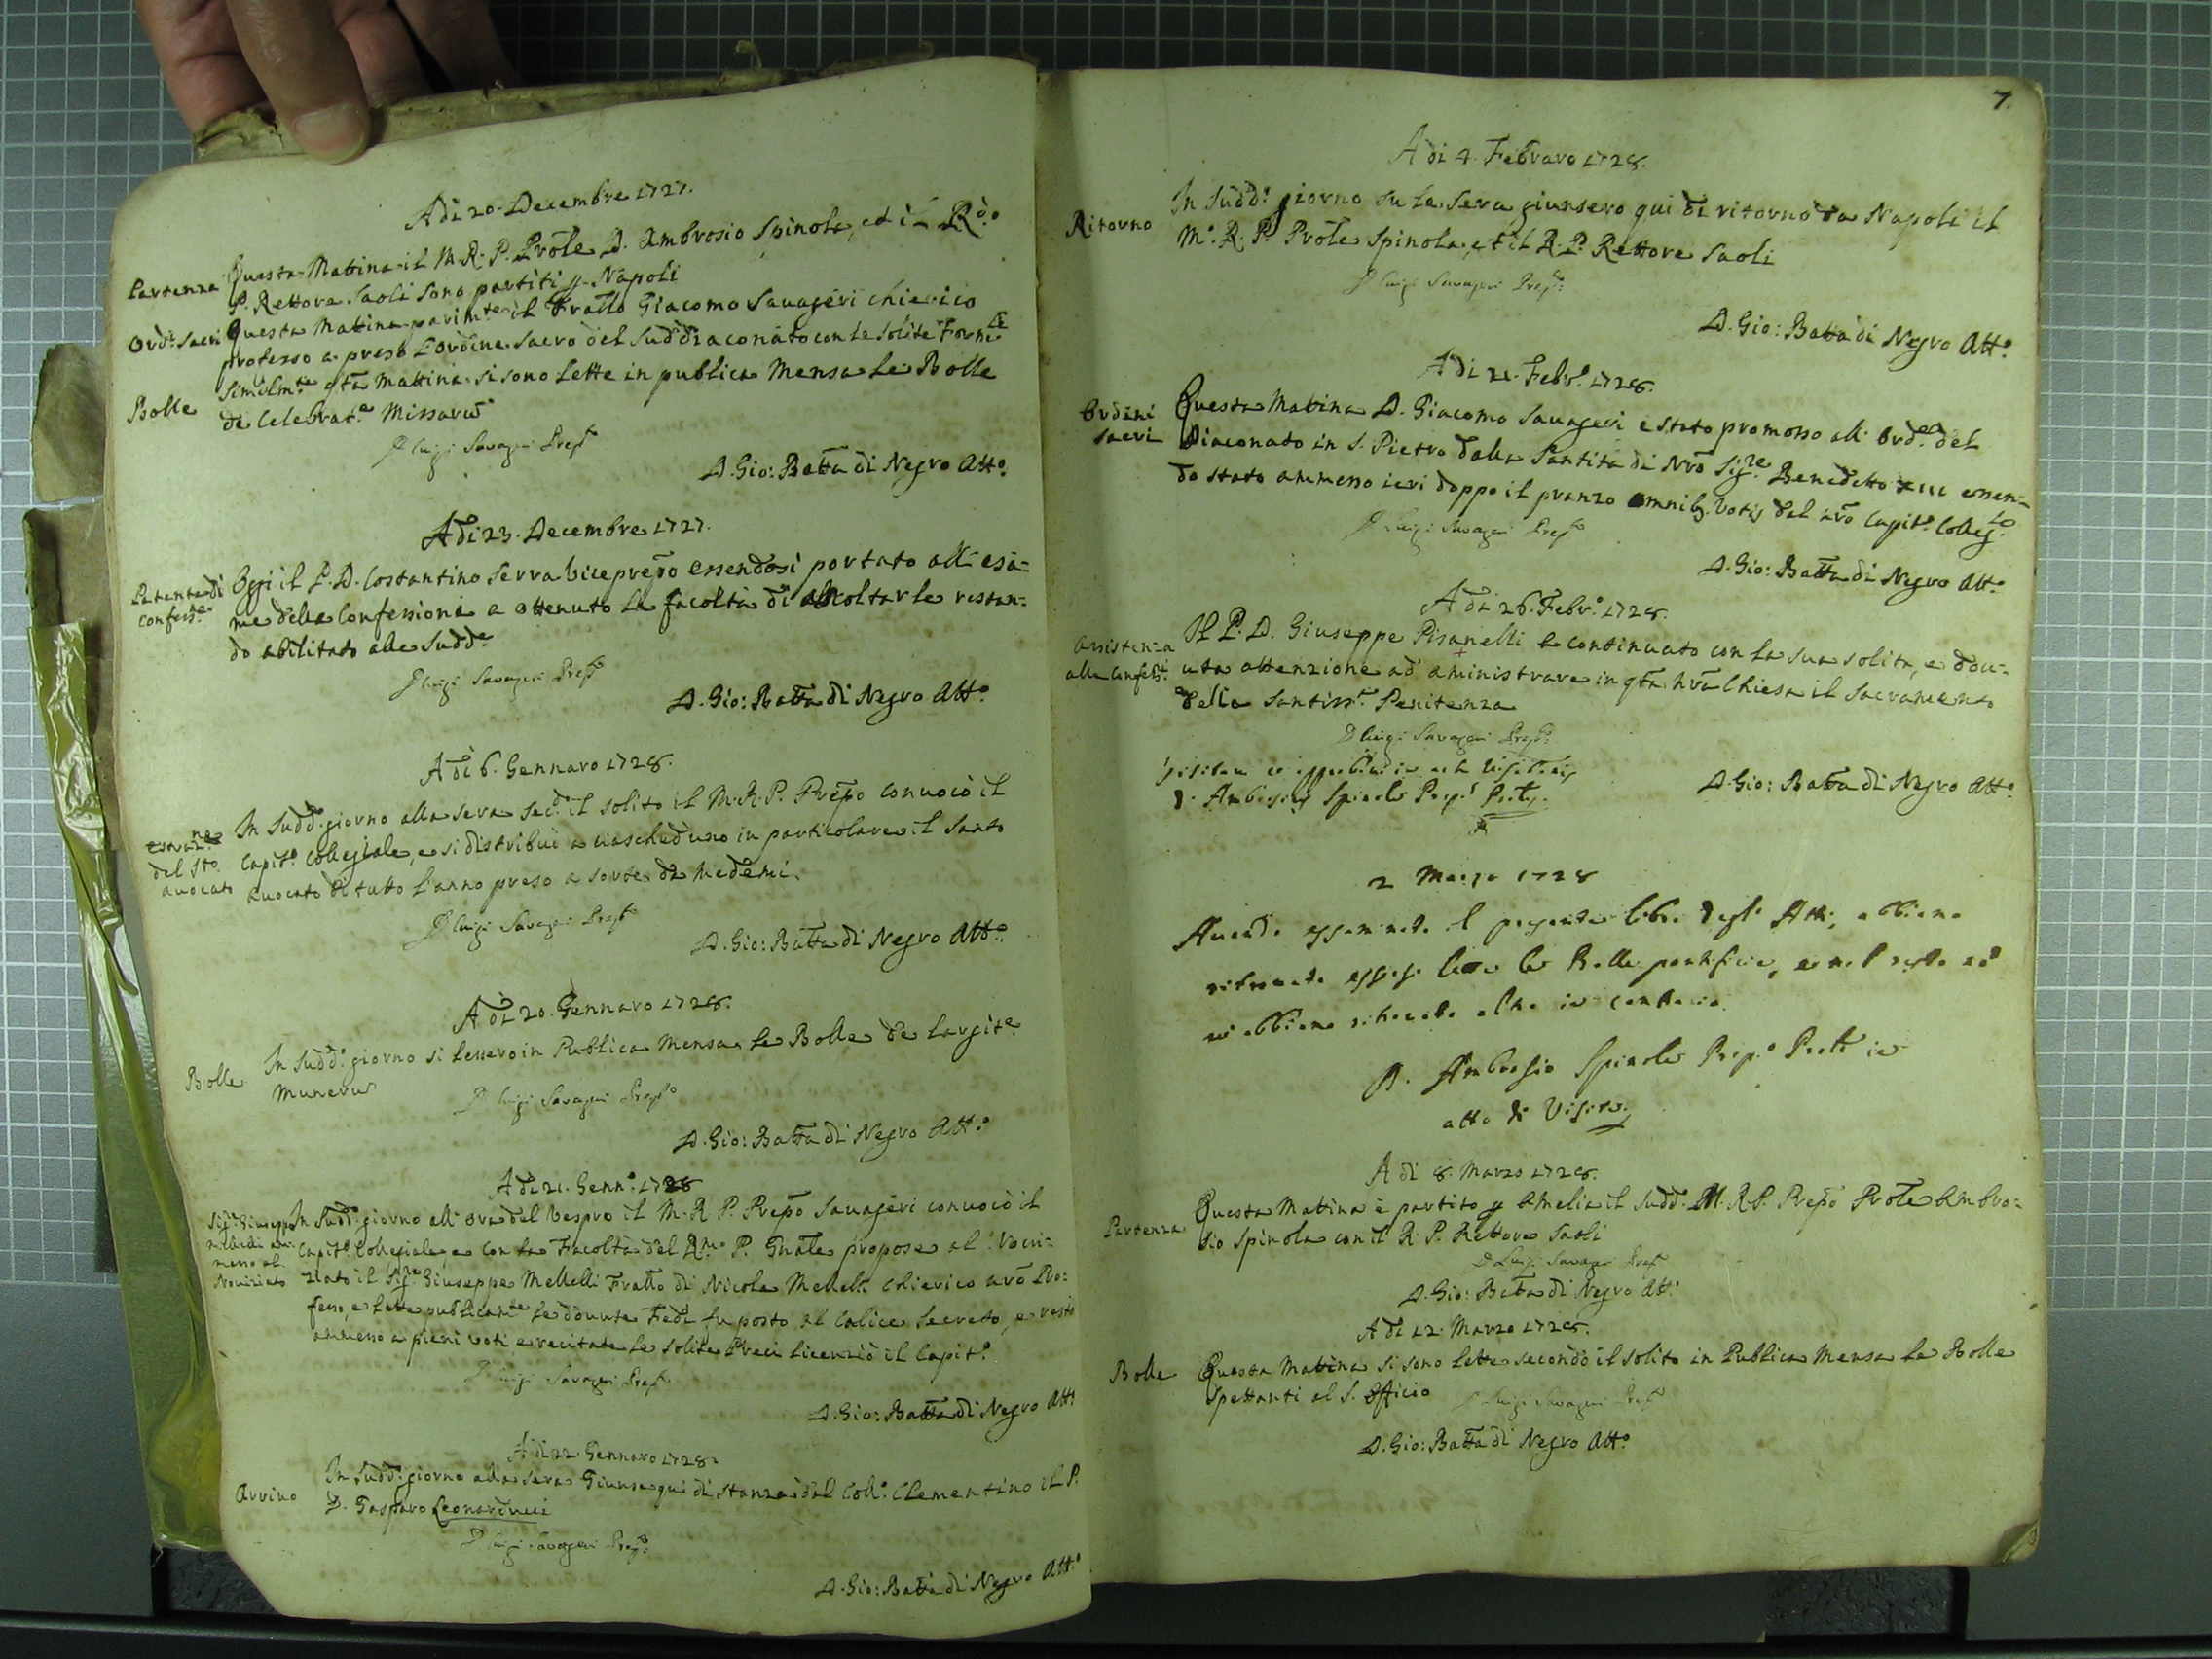 A di 20. Decembre 1727.
Partenza Questa Mattina il M. R. P. Prõle D. Ambrosio Spinola, ed il R.do
P. Rettore Saoli sono partiti p Napoli
Ord.i Sacri Questa Mattina parim.te il Frallo Giacomo Savageri chierico
professo a preso l'ordine sacro del Suddiaconato con le solite Form.le
Bolle Similm.te q̃ta Mattina si sono lette in publica Mensa le Bolle
de Celebrat.e Missarũ
D Luigi Savageri Prep.to
D. Gio: Batta di Negro Att.o
A di 23. Decembre 1727.
Patente di Confess.e Oggi il P. D. Costantino Serra Viceprep̃o essendosi portato all' esa=
me della Confessione a ottenuto la facoltà di ascoltarle restan=
do abilitato alle Sudd.e
D Luigi Savageri Prep.to
D. Gio: Batta di Negro Att.o
A di 6. Gennaro 1728.
estraz.ne del Sto. avocato In Sudd.o giorno alla sera sec.do il solito il M. R. P. Prep̃o convocò il
Capit.o Collegiale, e si distribuì a ciascheduno in particolare il Santo
Avocato di tutto l'anno preso a sorte da Medemi.
D Luigi Savageri Prep.to
D. Gio: Batta di Negro Att.o
A di 20. Gennaro 1728.
Bolle In Sudd.o giorno si lessero in Publica Mensa le Bolle de largit.e
Munerũ
D Luigi Savageri Prep.to
D. Gio: Batta di Negro Att.o
A di 21. Genn.o 1728
Sig.r Giuseppe Mellelli am- messo al Noviziato In Sudd.o giorno all' ora del Vespro il M. R. P. Prep̃o Savageri convocò il
Capit.o Collegiale, e con la Facoltà del R.mo P. Gñale propose al Novi=
ziato il Sig.re Giuseppe Mellelli Fratt̃o di Nicola Mellelli chierico nr̃o Pro=
fesso, e lette publicam.te le dovute Fedi fu posto al Calice Secreto, e restò
ammesso a pieni voti e recitate le solite Preci licenziò il Capit.o
D Luigi Savageri Prep.to
D. Gio: Batta di Negro Att.o
A di 22. Gennaro 1728.
Arrivo In Sudd.o giorno alla sera Giunse qui di stanza dal Coll.o Clementino il P.
D. Gasparo Leonarducci
D Luigi Savageri Prep.to
D. Gio: Batta di Negro Att.o
7.
A di 4. Febraro 1728.
Ritorno In Sudd.o giorno su la sera giunsero qui di ritorno da Napoli il
M.o R. P. Prõle Spinola, et il R. P. Rettore Saoli
D Luigi Savageri Prep.to
D. Gio: Batta di Negro Att.o
A di 21. Febr.o 1728.
Ordini sacri Questa Mattina D. Giacomo Savageri è stato promosso all' Ord.e del
Diaconato in S. Pietro dalla Santità di Nr̃o Sig.re Benedetto XIII essen=
do stato ammesso ieri doppo il pranzo omnib. Votis dal nr̃o Capit.o Colleg.to
D Luigi Savageri Prep.to
D. Gio: Batta di Negro Att.o
A di 26. Febr.o 1728.
Assistenza alle Confess.i Il P. D. Giuseppe Pisanelli à continuato con la sua solita, e dov=
uta attenzione ad aministrare in q̃ta nr̃a Chiesa il Sacramento
della Santiss.a Penitenza
D Luigi Savageri Prep.to
D. Gio: Batta di Negro Att.o
D. Ambrosius Spinola Prep.s
2 Marzo 1728
Avendo essaminato il presente libro degl' Atti, abbiamo
ritrovato essersi lette le Bolle pontificie, e nel resto nõ
vi abbiamo ritrovato altro in contrario.
D. Ambrosio Spinola Prep.o Prõle in
atto di Visita
A di 8. Marzo 1728.
Partenza Questa Mattina è partito p Amelia il Sudd.o M. R. P. Prep̃o Prõle Ambro=
sio Spinola con il R. P. Rettore Saoli
D Luigi Savageri Prep.to
D. Gio: Batta di Negro Att.o
A di 12. Marzo 1728.
Bolle Questa Mattina si sono lette secondo il solito in Publica Mensa le Bolle
Spettanti al S. Officio
D Luigi Savageri Prep.to
D. Gio: Batta di Negro Att.o